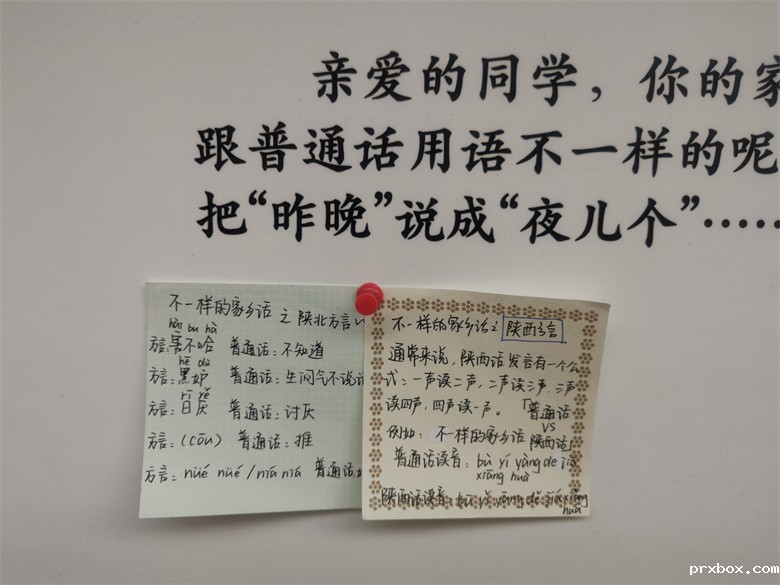 亲爱的同学，你的家
跟普通话用语不一样的呢
把“昨晚”说成“夜儿个”……
不一样的家乡话之陕北方言
方言：害不哈 普通话：不知道
hēi dù
方言：黑妒 普通话：生闷气不说话
方言：日厌 普通话：讨厌
方言：(cōu) 普通话：推
方言：nüé nüé / niā niā 普通话
不一样的家乡话之 陕西方言
通常来说，陕西话发言有一个公
式：一声读二声，二声读三声，三声
读四声，四声读一声。「普通话
VS
例如：不一样的家乡话 陕西话」
普通话读音：bù yí yàng de jiā
xiāng huà
陕西话读音：
huā
prxbox.com